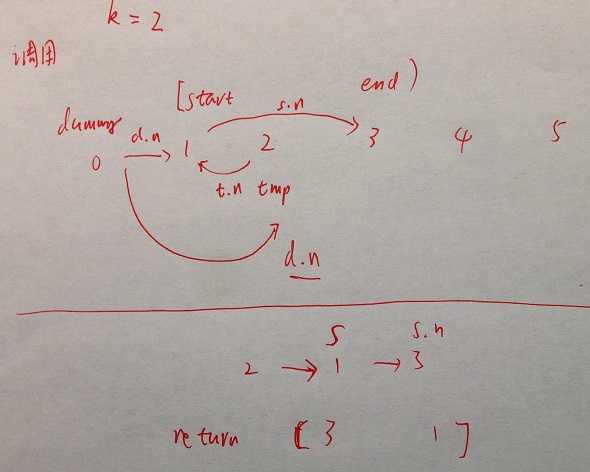 k = 2
调用
[start s.n end)
dummy d.n
0 1 2 3 4 5
t.n tmp
d.n
S s.n
2 → 1 → 3
return [3 1]